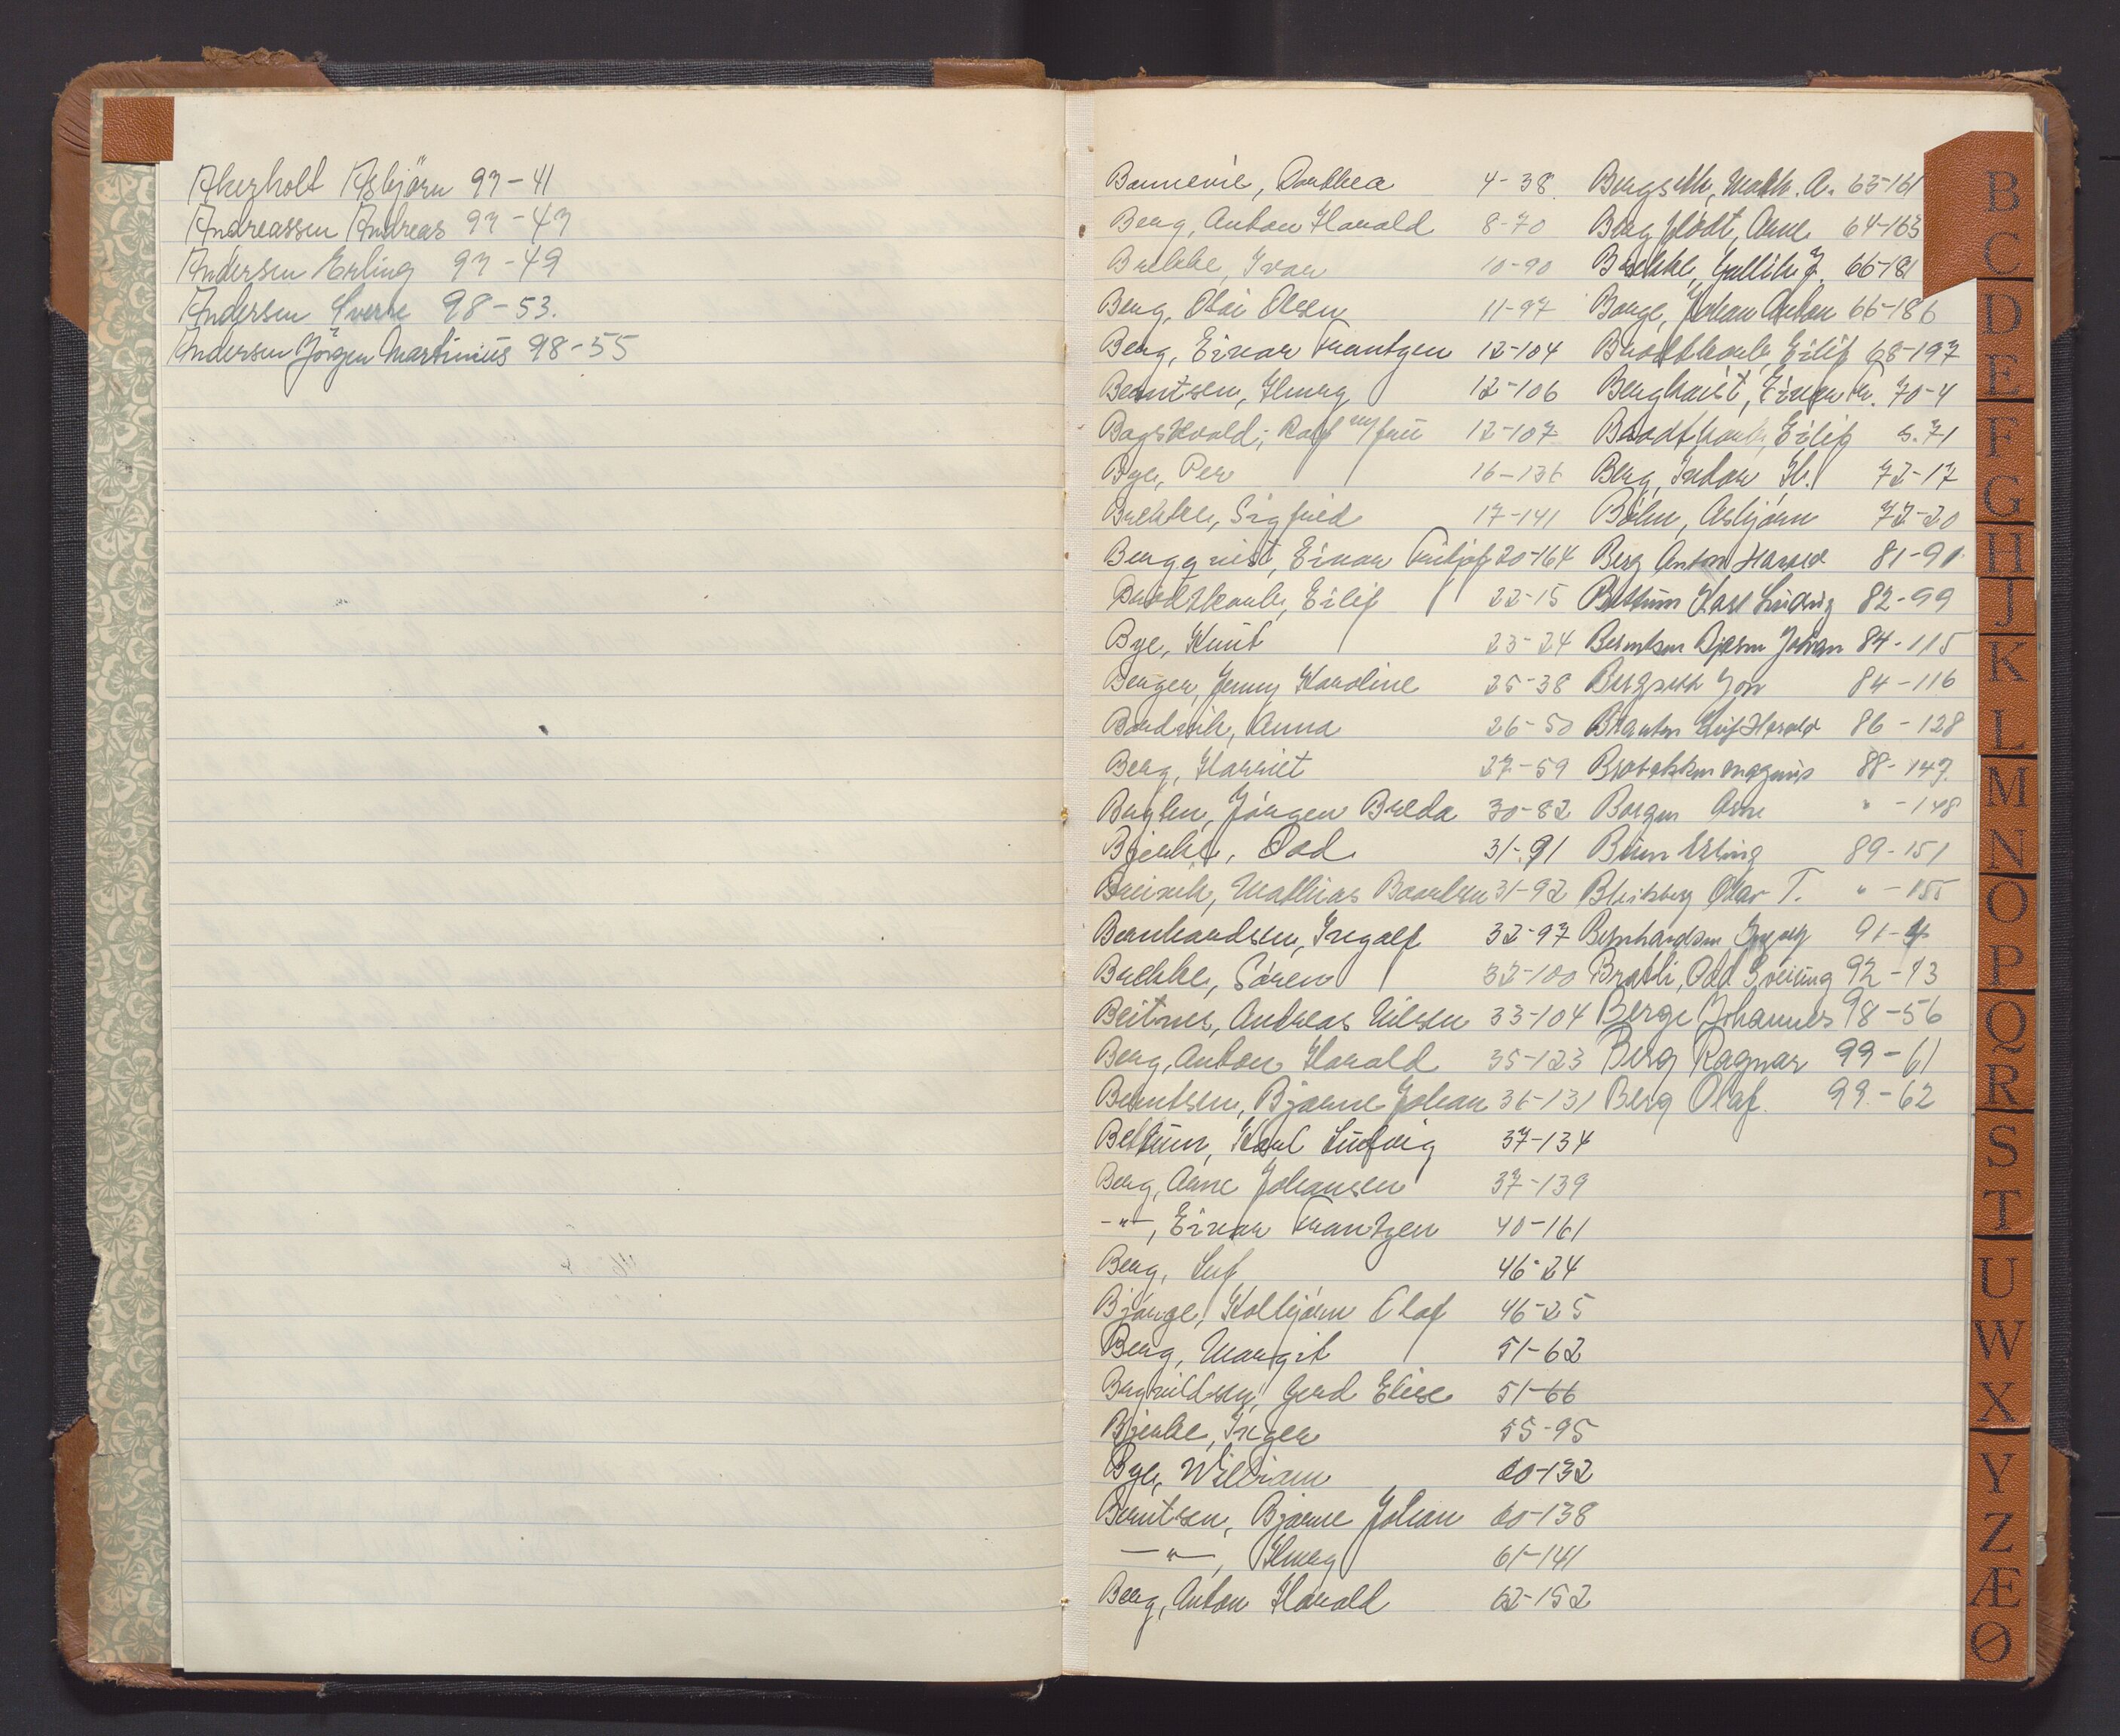 Akerholt Asbjörn 97-41
Andreassen Andreas 97-47
Andersen Erling 97-49
Andersen Sverre 98-53.
Andersen Jörgen Martinius 98-55
Bonnevie, Dorthea 4-38
Berg, Anton Harald 8-70
Brekke, Ivar 10-90
Berg, Olai Olsen 11-97
Berg, Einar Frantzen 12-104
Berntsen, Henry 12-106
Bogstvold, Rolf m/fru 12-107
Bye, Per 16-136
Brekke, Sigfred 17-141
Bergqvist, Einar Fritjof 20-164
Brodtkorb, Eilif 22-15
Bye, Knut 23-24
Berger, Jenny Karoline 25-38
Bordvik, Anna 26-50
Berg, Harriet 27-59
Jörgen Breda 30-82
Bjerke, Odd 31-91
Breivik, Mathias Baardsen 31-92
Bernhardsen, Ingolf 32-97
Brekke, Sören 32-100
Beitnes, Andreas Nilsen 33-104
Berg, Anton Harald 35-123
Berntsen, Bjarne Johan 36-131
Bettum, Karl Ludvig 37-134
Berg, Arne Johansen 37-139
-"-, Einar Frantzen 40-161
Berg, Leif 46-24
Bjönge, Kolbjörn Olaf 46-25
Berg, Margit 51-62
Gerd Elise 51-66
Bjerke, Inger 55-95
Bye, William 60-132
Berntsen, Bjarne Johan 60-138
-"-, Henry 61-141
Berg, Anton Harald 62-152
Bergseth, Math. A. 63-161
Bergflödt, Arne 64-163
Brekke, 66-181
Borge, Johan Anton 66-186
Brodtkorb, Eilif 68-197
Bergkvist, Einar Fr. 70-4
Brodtkorb, Eilif s. 71
Berg, Indar H. 72-17
Böhn, Asbjörn 72-20
Berg Anton Harald 81-91
Bettum Karl Ludvig 82-99
Berntsen Bjarne Johan 84-115
Bergseth Jon 84-116
Leif Harald 86-128
Magnus 88-147.
Borgen Arne " -148
Bruun Erling 89-151
Olav T. " -155
Bernhardsen Ingolf 91-4
Bratli, Odd Sveinung 92-13
Berge Johannes 98-56
Berg Ragnar 99-61
Berg Olaf. 99-62
B
C
D
E
F
G
H
J
K
L
M
N
O
P
Q
R
S
T
U
W
X
Y
Z
Æ
Ø